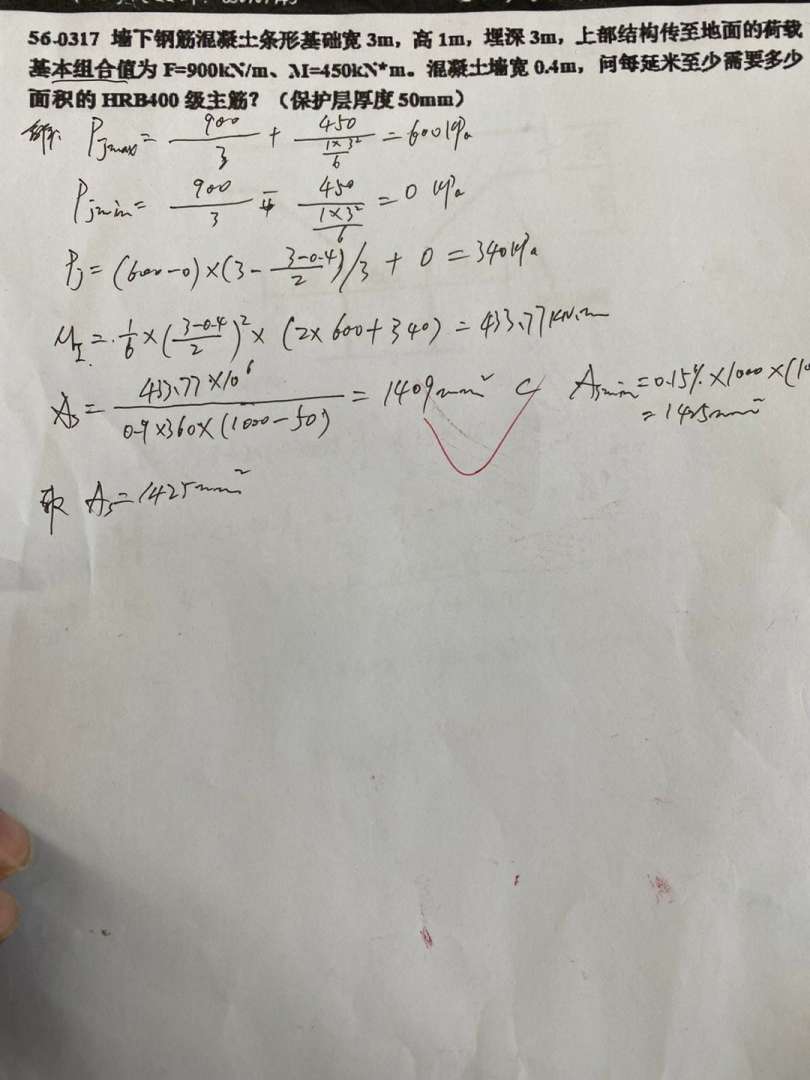 56-0317 墙下钢筋混凝土条形基础宽 3m，高 1m，埋深 3m，上部结构传至地面的荷载
基本组合值为 F=900kN/m、M=450kN*m。混凝土墙宽 0.4m，问每延米至少需要多少
面积的 HRB400 级主筋？（保护层厚度 50mm）
解: Pjmax = 900/3 + 450/(1×3²/6) = 600kPa
Pjmin = 900/3 - 450/(1×3²/6) = 0 kPa
Pj = (600-0)×(3- (3-0.4)/2)/3 + 0 = 340kPa
MI = 1/6 × ((3-0.4)/2)² × (2×600+340) = 433.77kN.m
As = 433.77×10⁶/(0.9×360×(1000-50)) = 1409mm² < Asmin = 0.15%×1000×(10
= 1425mm²
取 As=1425mm²